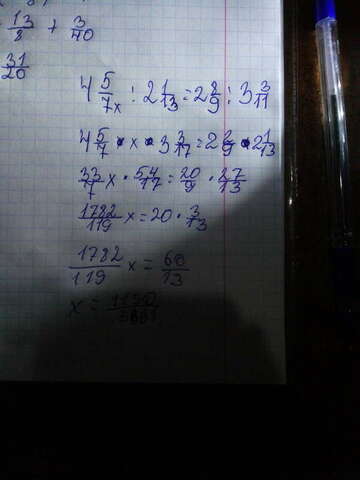 13/2 + 3/40
31/20
4 5/7 x : 2 1/13 = 2 2/9 : 3 3/11
4 5/7 · x · 3 3/17 = 2 2/9 · 2 1/13
33/7 x · 54/17 = 20/9 · 27/13
1782/119 x = 20 · 3/13
1782/119 x = 60/13
x =